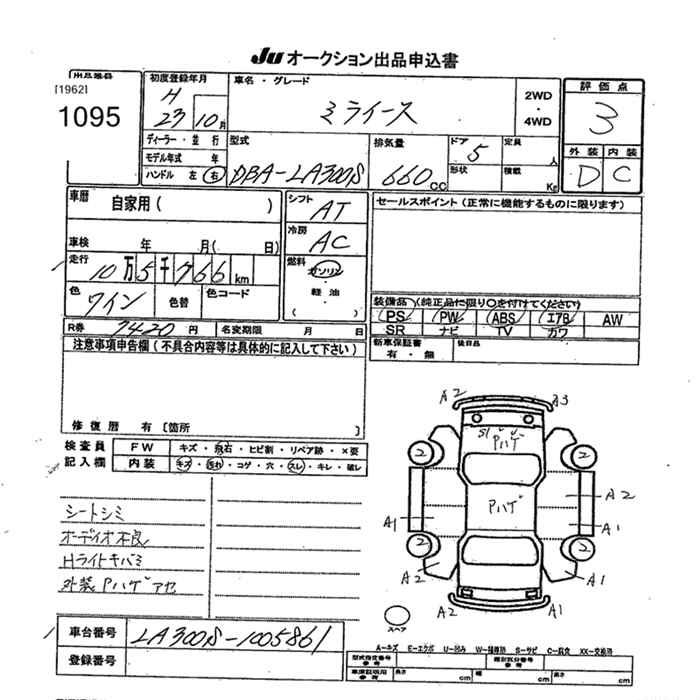 Ju オークション出品申込書
[1962]
1095
初度登録年月
H
23 10月
車名・グレード
ミライース
2WD
・
4WD
評価点
3
ディーラー・並行
モデル年式 年
ハンドル 左 右
型式
DBA-LA300S
排気量
660 CC
ドア
5
形状
定員
人
積載
Kg
外装 内装
D C
車歴
自家用( )
シフト
AT
セールスポイント(正常に機能するものに限ります)
車検 年 月( 日)
冷房
AC
走行
10万5千766km
燃料
ガソリン
・
軽油
・
( )
色
ワイン
色替
色コード
装備品(純正品に限り○を付けてください)
PS PW ABS エアB AW
SR ナビ TV カワ
R券 7420円
名変期限 月 日
新車保証書
有・無
後日品
注意事項申告欄(不具合内容等は具体的に記入して下さい)
修復歴 有〔箇所 〕
検査員
記入欄
FW キズ・飛石・ヒビ割・リペア跡・×要
内装 キズ・汚れ・コゲ・穴・スレ・キレ・破レ
A2 A3
S1
Pハゲ
2 2
Pハゲ
A2
A1 A1
2 2
A2 A1
A2 A1
スペア
シートシミ
オーディオ不良
Hライトキバミ
外装Pハゲアセ
車台番号 LA300S-1005861
登録番号
A-キズ E-エクボ U-凹み W-補修跡 S-サビ C-腐食 XX-交換済
型式指定番号
参考
類別区分番号
参考
車庫証明用
参考
長さ cm 幅 cm 高さ cm